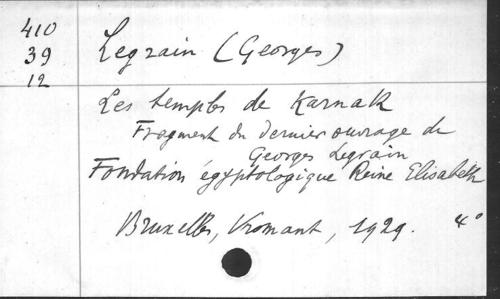 410
39
12
Legrain (Georges)
Les temples de Karnak
Fragment du dernier ouvrage de
Georges Legrain
Fondation égyptologique Reine Elisabeth
Bruxelles, Vromant, 1929. 4°